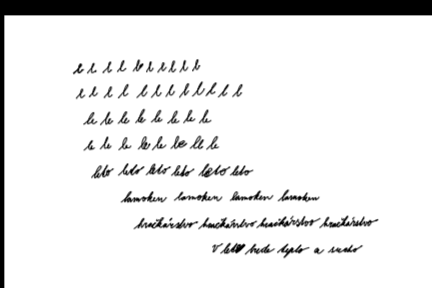 l l l l l l l l l l
l l l l l l l l l l l l
le le le le le le le le
le le le le le le le
leto leto leto leto leto leto
lamoken lamoken lamoken lamoken
hračkárstvo hračkárstvo hračkárstvo hračkárstvo
V lete bude teplo a sucho